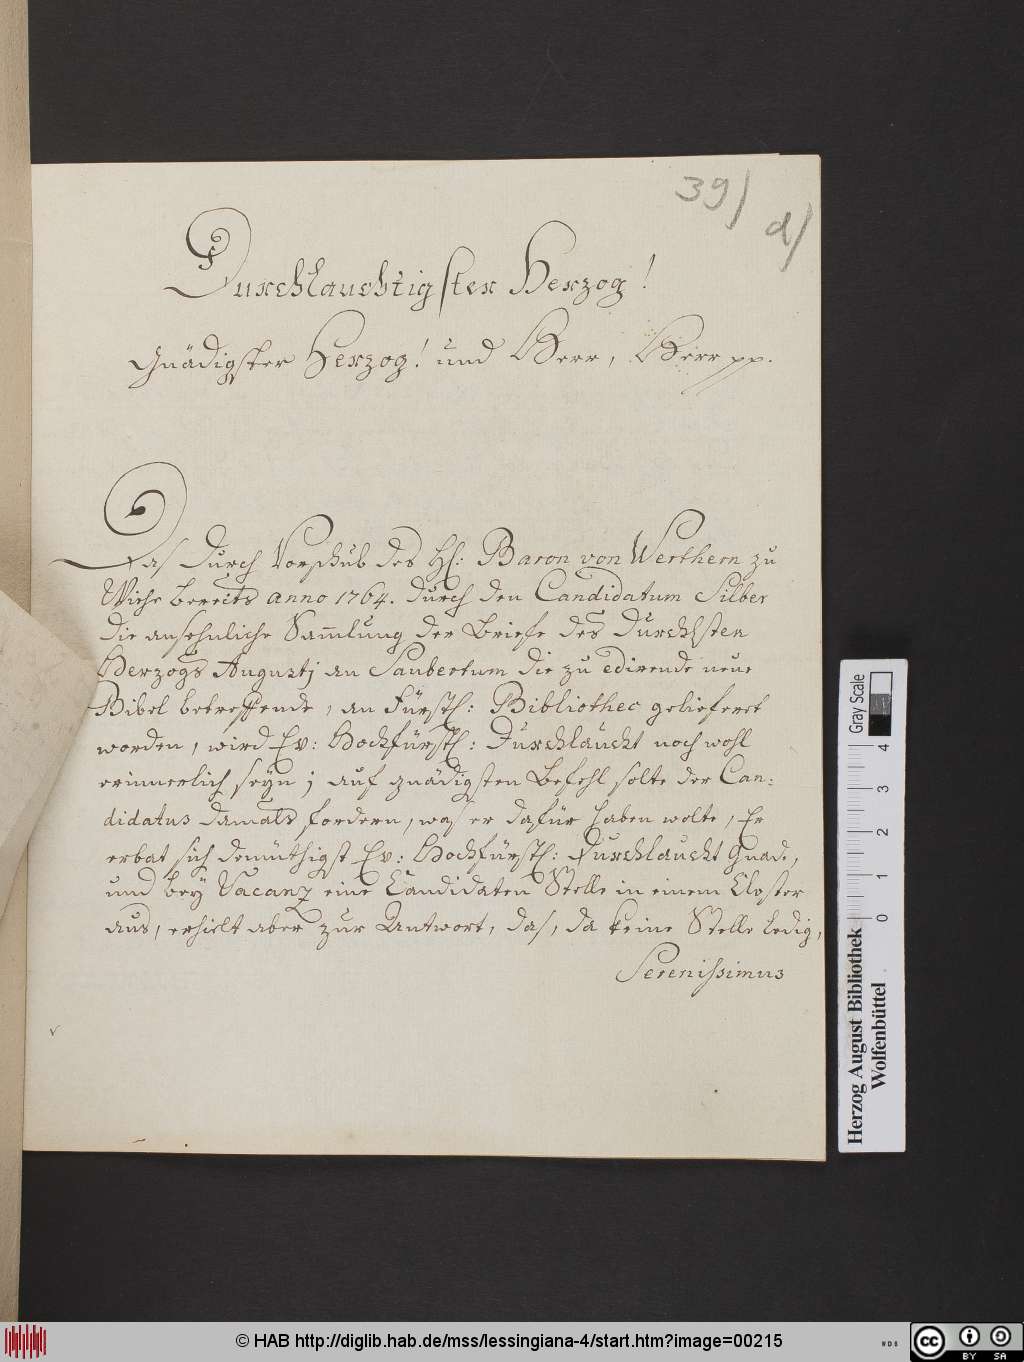 39)
d)
Durchlauchtigster Herzog!
Gnädigster Herzog! und Herr, Herr pp.
Das durch Vorschub des H: Baron von Werthern zu
Wiehe bereits anno 1764. durch den Candidatum Silber
die ansehnliche Sam̅lung der Briefe des Durchlsten
Herzogs Augustj an Saubertum die zu edirende neue
Bibel betreffende, an Fürstl: Bibliothec geliefert
worden, wird Ew: Hochfürstl: Durchlaucht noch wohl
erinnerlich seyn; auf gnädigsten Befehl solte der Can:
didatus damals fordern, was er dafür haben wolte, Er
erbat sich demüthigst Ew: Hochfürstl: Durchlaucht Gnade,
und bey Vacanz eine Candidaten Stelle in einem Closter
aus, erhielt aber zur Antwort, das, da keine Stelle ledig,
Serenissimus
Gray Scale
0 1 2 3 4
Herzog August Bibliothek
Wolfenbüttel
© HAB http://diglib.hab.de/mss/lessingiana-4/start.htm?image=00215
cc BY SA